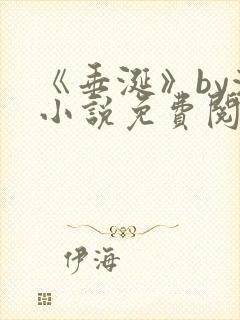 《垂涎》by
小說免費閱
伊海